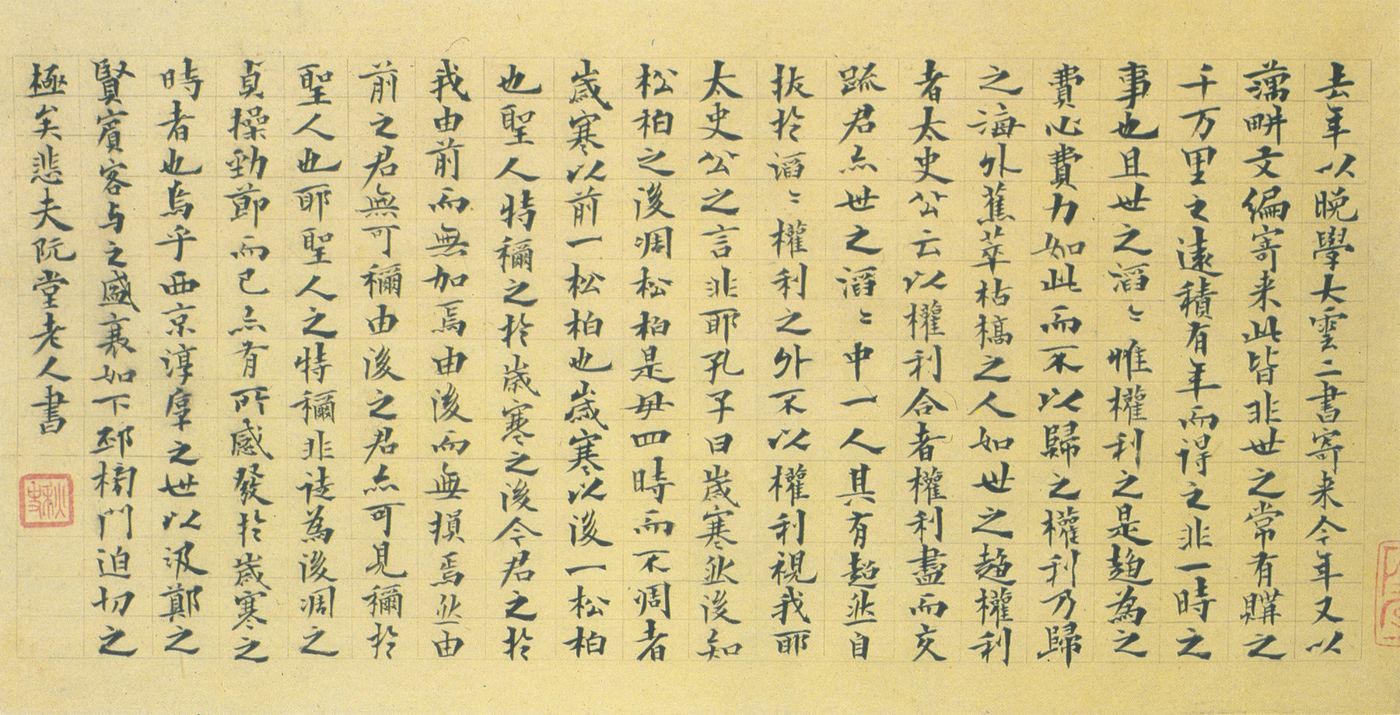 去年以晚學大雲二書寄来今年又以
藕畊文編寄来此皆非世之常有購之
千万里之遠積有年而得之非一時之
事也且世之滔〻惟權利之是趨為之
費心費力如此而不以歸之權利乃歸
之海外蕉萃枯槁之人如世之趨權利
者太史公云以權利合者權利盡而交
踈君亦世之滔〻中一人其有超然自
拔於滔〻權利之外不以權利視我耶
太史公之言非耶孔子曰歲寒然後知
松柏之後凋松柏是毋四時而不凋者
歲寒以前一松柏也歲寒以後一松柏
也聖人特稱之於歲寒之後今君之於
我由前而無加焉由後而無損焉然由
前之君無可稱由後之君亦可見稱於
聖人也耶聖人之特稱非徒為後凋之
貞操勁節而已亦有所感發於歲寒之
時者也烏乎西京淳厚之世以汲鄭之
賢賓客与之盛衰如下邳榜門迫切之
極矣悲夫阮堂老人書
秋史